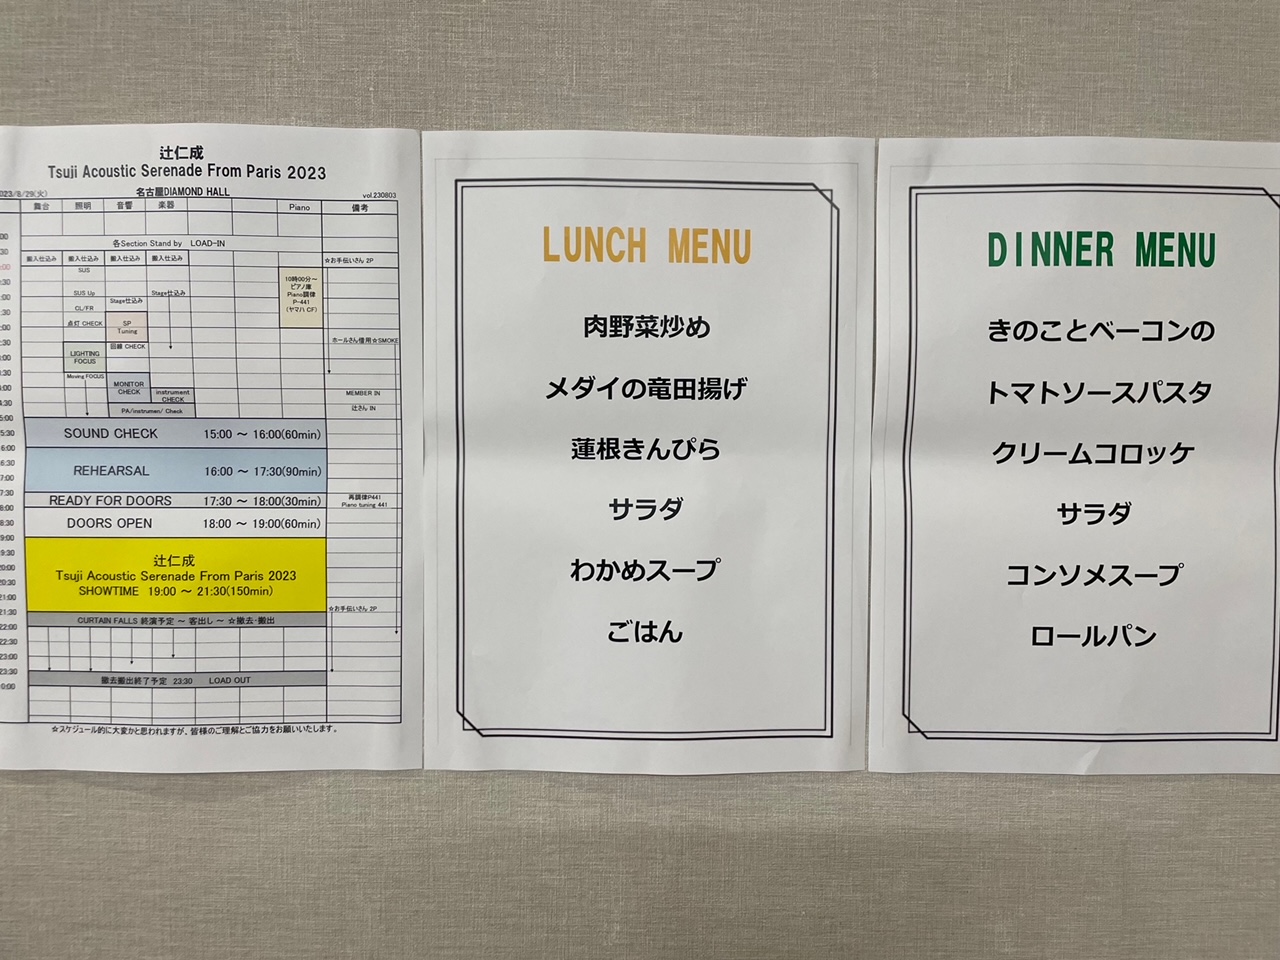 辻仁成
Tsuji Acoustic Serenade From Paris 2023
名古屋DIAMOND HALL
vol.230803
舞台 照明 音響 楽器 Piano 備考
各Section Stand by LOAD-IN
搬入仕込み 搬入仕込み 搬入仕込み 搬入仕込み
☆お手伝いさん 2P
SUS
10時00分～
ピアノ庫
Piano調律
P-441
(ヤマハ CF)
SUS Up
Stage仕込み
Stage仕込み
CL/FR
点灯 CHECK
SP
Tuning
回線 CHECK
ホールさん借用☆SMOKE
LIGHTING
FOCUS
Moving FOCUS
MONITOR
CHECK
instrument
CHECK
MEMBER IN
PA/instrumen/ Check
辻さん IN
SOUND CHECK 15:00 ～ 16:00(60min)
REHEARSAL 16:00 ～ 17:30(90min)
READY FOR DOORS 17:30 ～ 18:00(30min)
再調律P441
Piano tuning 441
DOORS OPEN 18:00 ～ 19:00(60min)
辻仁成
Tsuji Acoustic Serenade From Paris 2023
SHOWTIME 19:00 ～ 21:30(150min)
☆お手伝いさん 2P
CURTAIN FALLS 終演予定 ～ 客出し ～ ☆撤去・搬出
撤去搬出終了予定 23:30 LOAD OUT
☆スケジュール的に大変かと思われますが、皆様のご理解とご協力をお願いいたします。
LUNCH MENU
肉野菜炒め
メダイの竜田揚げ
蓮根きんぴら
サラダ
わかめスープ
ごはん
DINNER MENU
きのことベーコンの
トマトソースパスタ
クリームコロッケ
サラダ
コンソメスープ
ロールパン